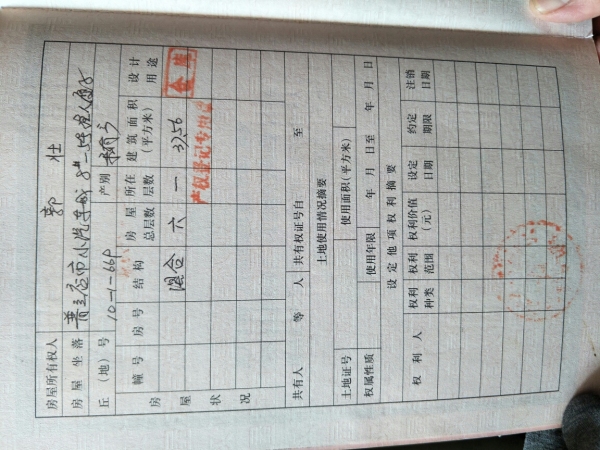 房屋所有权人 郭 壮
房屋坐落
丘（地）号 10-1-66P 产别
房屋状况
幢号 房号 结构 房屋总层数 所在层数 建筑面积（平方米） 设计用途
混合 六 一 37.56
产权登记专用章
共有人 等 人 共有权证号自 至
土地使用情况摘要
土地证号 使用面积（平方米）
权属性质 使用年限 年 月 日至 年 月 日
设定他项权利摘要
权利人 权利种类 权利范围 权利价值（元） 设定日期 约定期限 注销日期